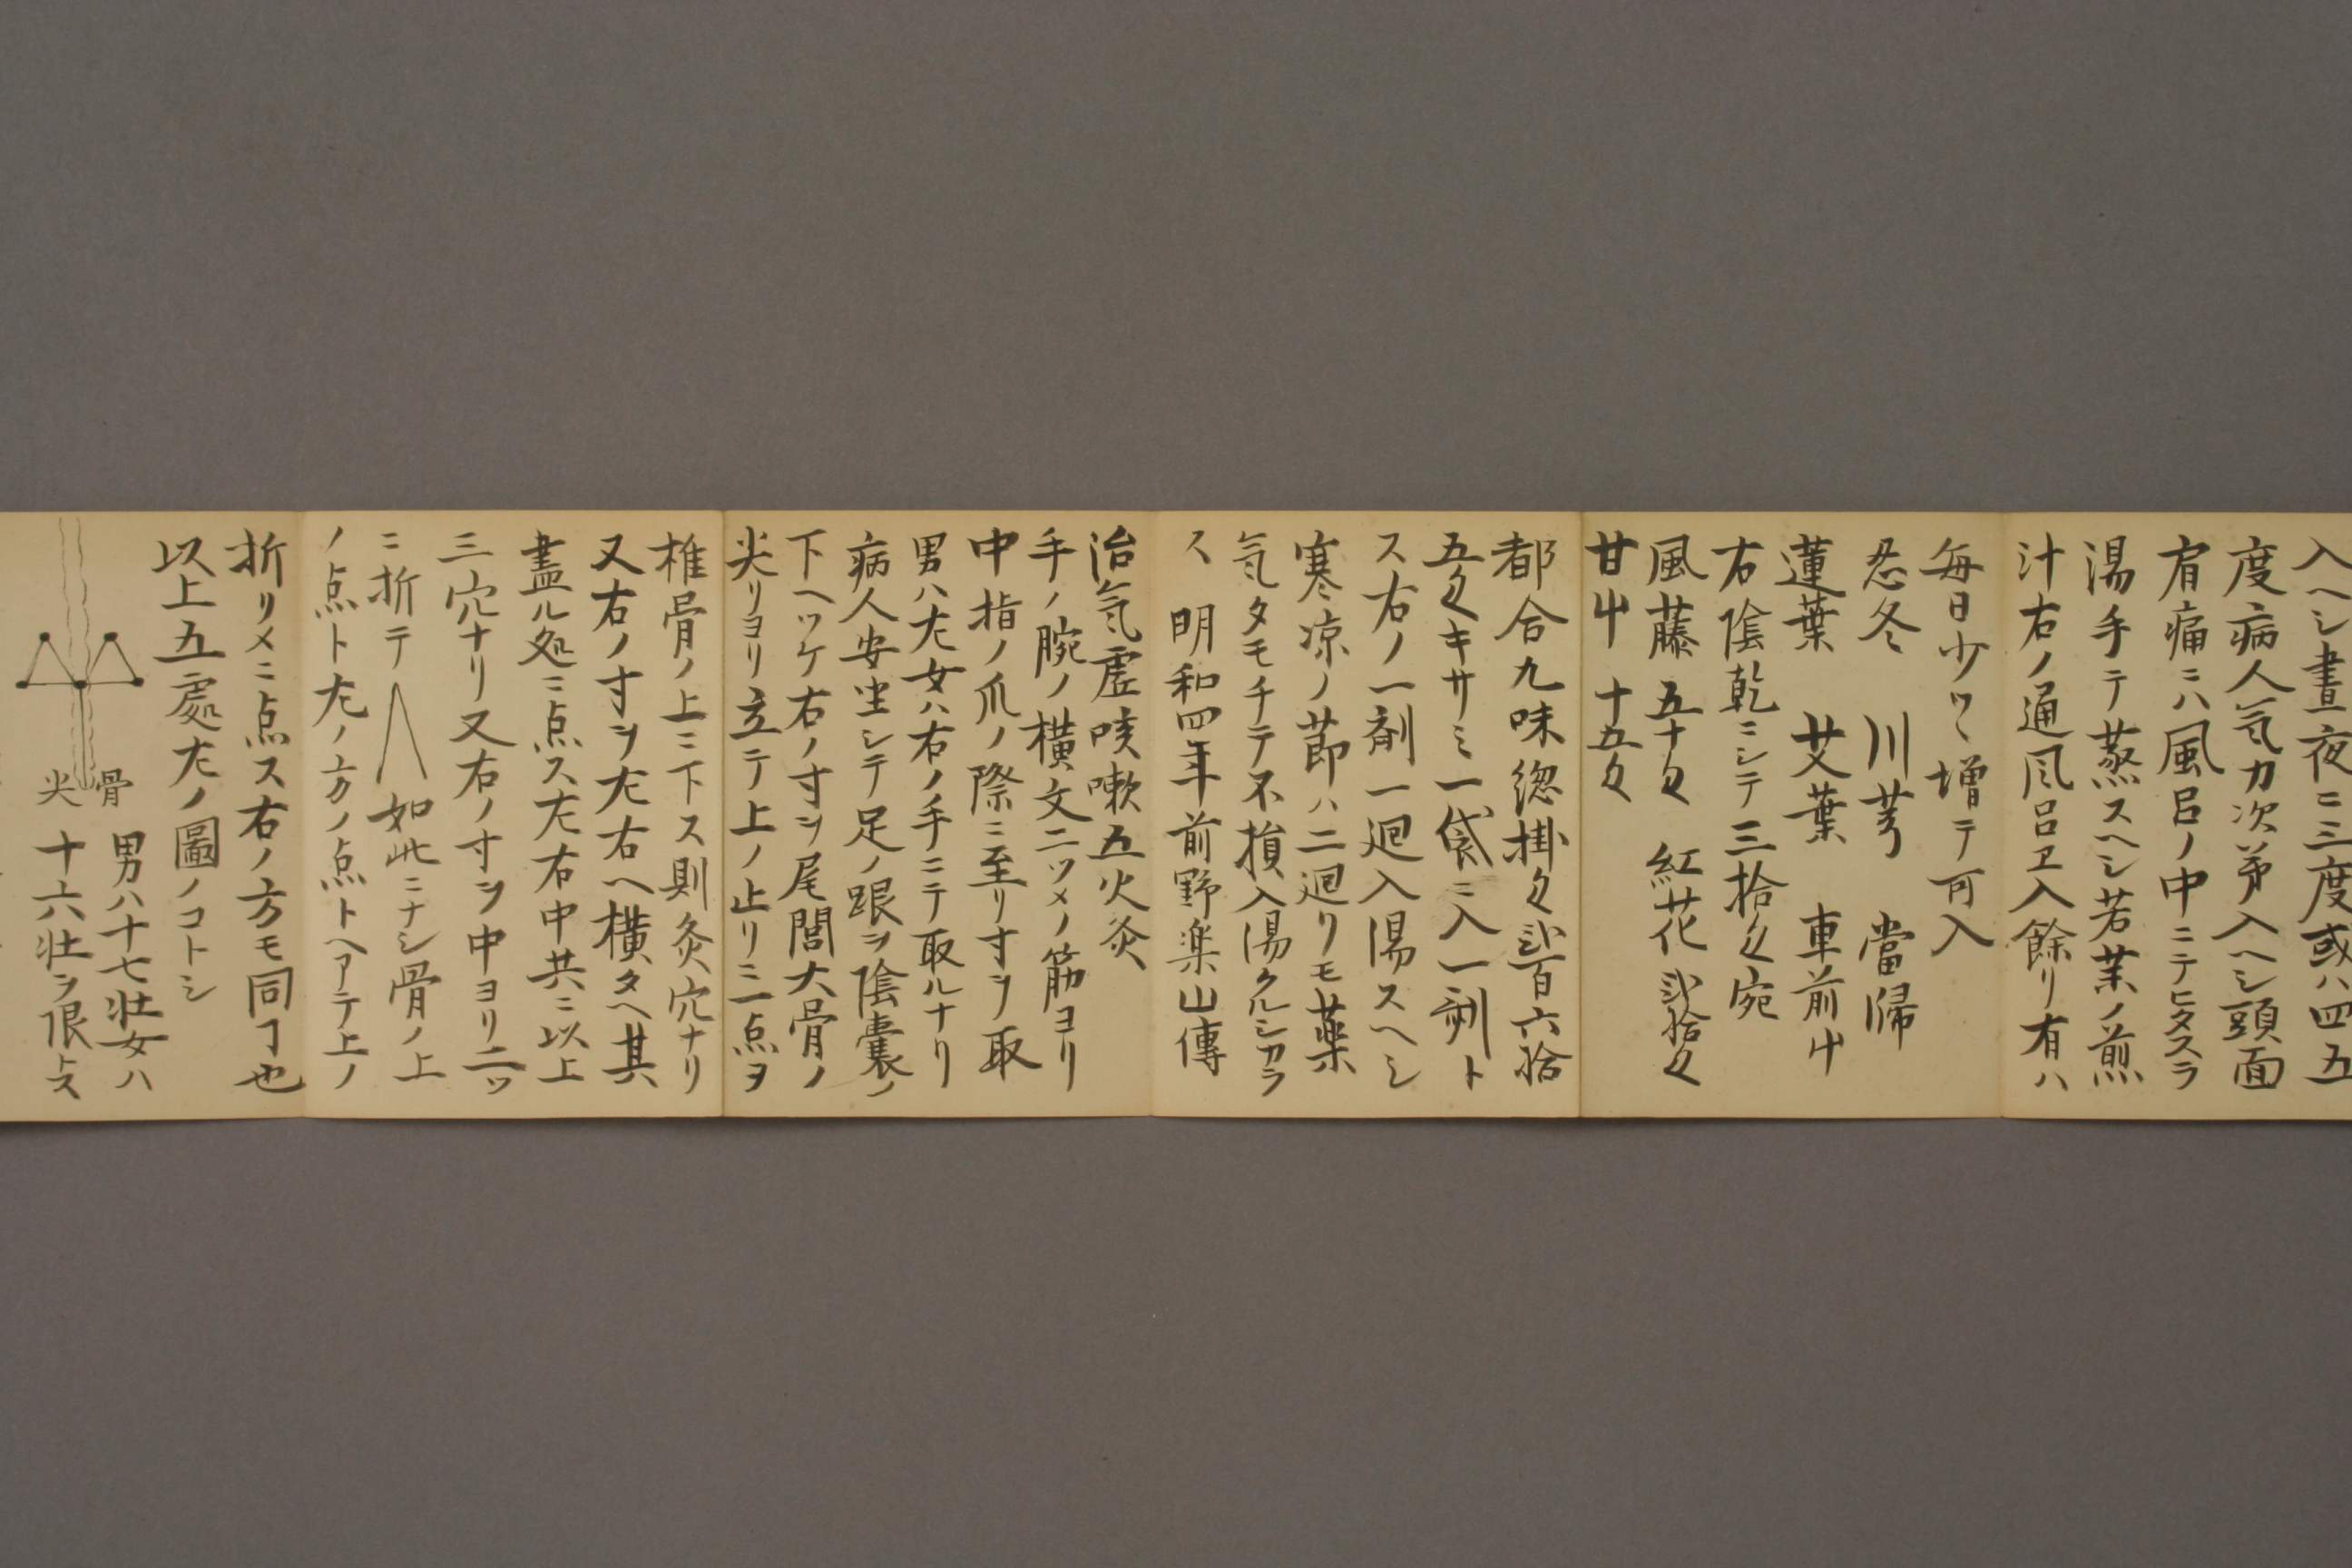 入ヘシ晝夜ニ三度或ハ四五
度病人気力次第入ヘシ頭面
肩痛ニハ風呂ノ中ニテヒタスラ
湯手テ蒸スヘシ若葉ノ煎
汁右ノ通風呂エ入餘リ有ハ
毎日少ツヽ増テ可入
忍冬 川芎 當帰
蓮葉 艾葉 車前屮
右陰乾ニシテ三拾匁宛
風藤 五十匁 紅花 弐拾匁
甘屮 十五匁
都合九味惣掛匁弐百六拾
五匁キサミ一袋ニ入一剤ト
ス右ノ一剤一廻入湯スヘシ
寒凉ノ節ハ二廻リモ薬
気タモチテ不損入湯クルシカラ
ス 明和四年前野楽山傳
治気虚咳嗽五火灸
手ノ腕ノ横文二ツメノ筋ヨリ
中指ノ爪ノ際ニ至リ寸ヲ取
男ハ左女ハ右ノ手ニテ取ルナリ
病人安坐シテ足ノ跟ヲ陰嚢ノ
下ヘツケ右ノ寸ヲ尾閭大骨ノ
尖リヨリ立テ上ノ止リニ一点ヲ
椎骨ノ上ニ下ス則灸穴ナリ
又右ノ寸ヲ左右ヘ横タヘ其
盡ル処ニ点ス左右中共ニ以上
三穴ナリ又右ノ寸ヲ中ヨリ二ツ
ニ折テ 如此ニナシ骨ノ上
ノ点ト左ノ方ノ点トヘアテ上ノ
折リメニ点ス右ノ方モ同了也
以上五處左ノ圖ノコトシ
骨
尖
男ハ十七壮女ハ
十六壮ヲ限トス